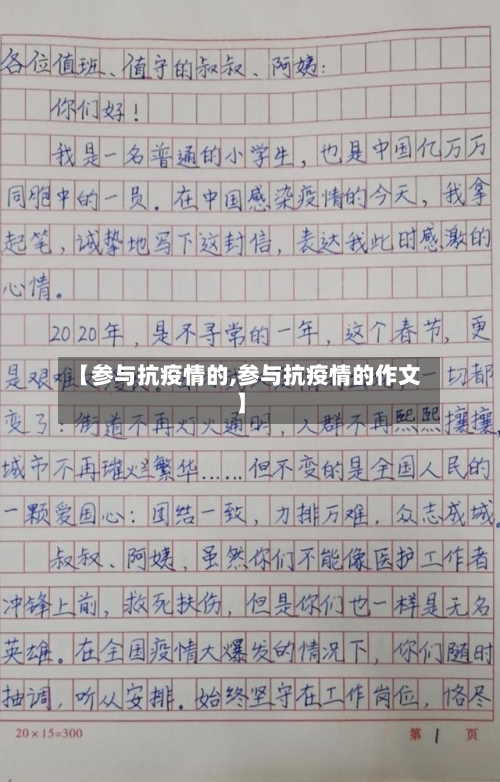 各位值班、值守的叔叔、阿姨:
你们好!
我是一名普通的小学生,也是中国亿万万
同胞中的一员。在中国感染疫情的今天,我拿
起笔,诚挚地写下这封信,表达我此时感激的
心情。
2020年,是不寻常的一年,这个春节,更
是艰难
一切都
【参与抗疫情的,参与抗疫情的作文
】
变了:街道不再灯火通明,人群不再熙熙攘攘,
城市不再璀烂繁华……但不变的是全国人民的
一颗爱国心:团结一致,力排万难,众志成城。
叔叔、阿姨,虽然你们不能像医护工作者
冲锋上前,救死扶伤,但是你们也一样是无名
英雄。在全国疫情大爆发的情况下,你们随时
抽调,听从安排。始终坚守在工作岗位,恪尽
20×15=300
第 1 页